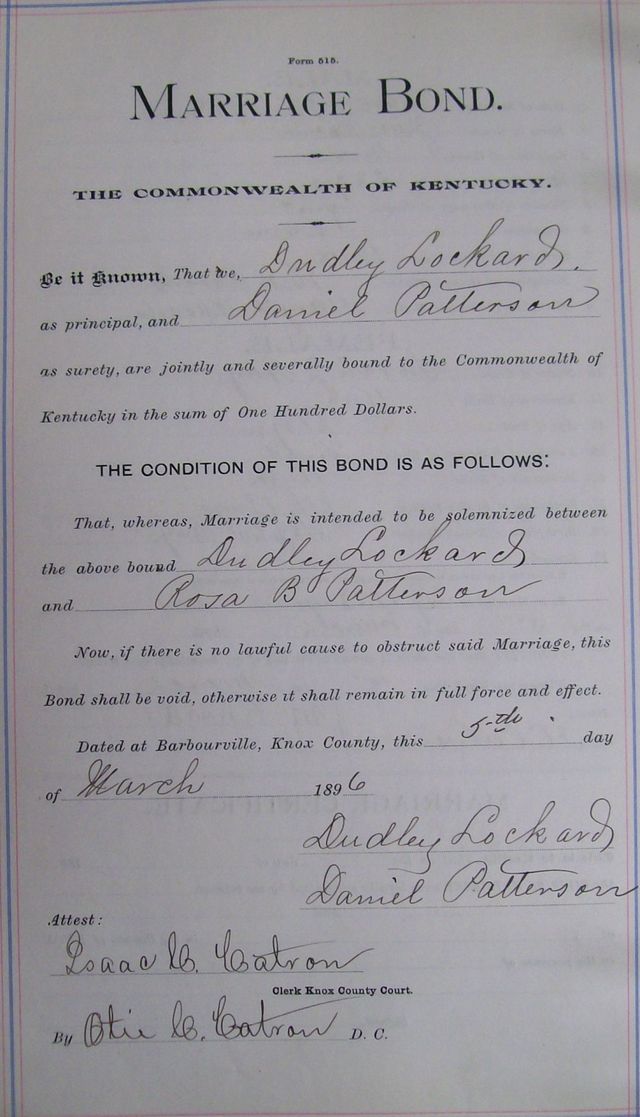 Form 515.
MARRIAGE BOND.
THE COMMONWEALTH OF KENTUCKY.
Be it Known, That we, Dudley Lockard.
as principal, and Daniel Patterson
as surety, are jointly and severally bound to the Commonwealth of
Kentucky in the sum of One Hundred Dollars.
THE CONDITION OF THIS BOND IS AS FOLLOWS:
That, whereas, Marriage is intended to be solemnized between
the above bound Dudley Lockard
and Rosa B Patterson
Now, if there is no lawful cause to obstruct said Marriage, this
Bond shall be void, otherwise it shall remain in full force and effect.
Dated at Barbourville, Knox County, this 5th day
of March 1896
Dudley Lockard
Daniel Patterson
Attest:
Isaac C. Catron
Clerk Knox County Court.
By Otie C. Catron D. C.